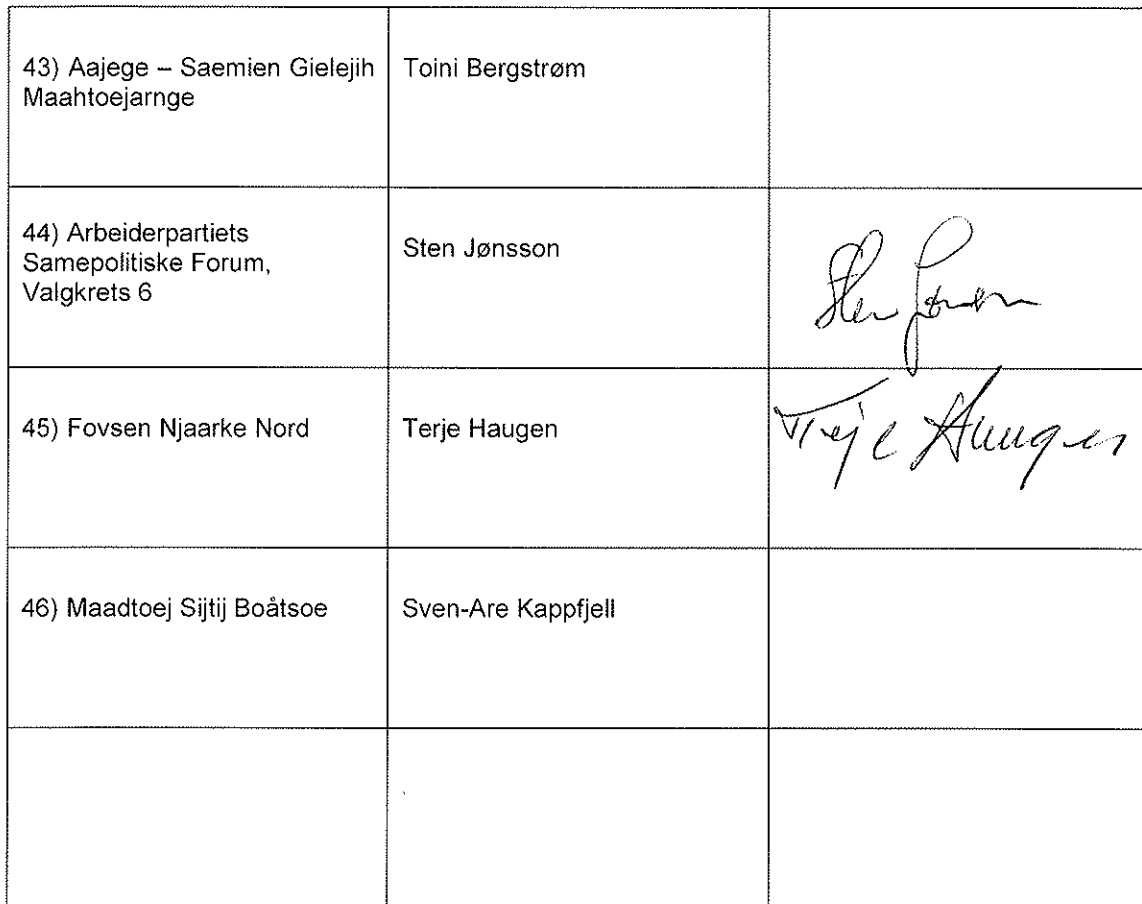 43) Aajege – Saemien Gielejih
Maahtoejarnge
Toini Bergstrøm
44) Arbeiderpartiets
Samepolitiske Forum,
Valgkrets 6
Sten Jønsson
Sten Jønsson
45) Fovsen Njaarke Nord
Terje Haugen
Terje Haugen
46) Maadtoej Sijtij Boåtsoe
Sven-Are Kappfjell